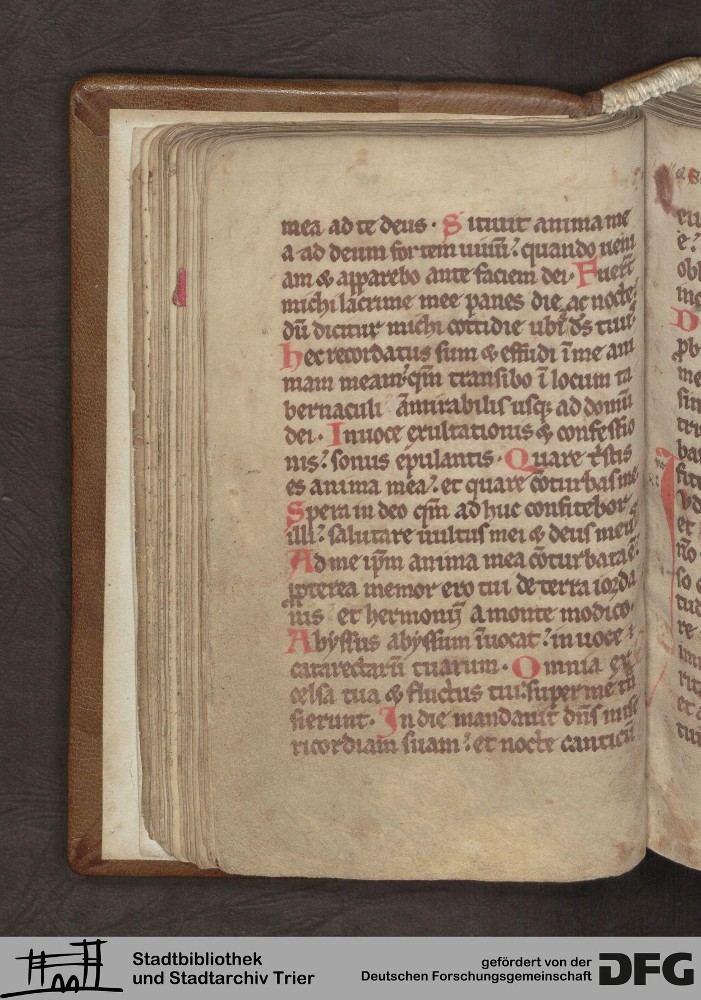 mea ad te deus · Sitiuit anima me
a ad deum fortem uiuū: quando ueni
am & apparebo ante faciem dei · Fuerūt
michi lacrime mee panes die ac nocte:
dū dicitur michi cottidie ubi est ds tuus
hec recordatus sum & effudi ī me ani
mam meam: qm̄ transibo ī locum ta
bernaculi āmirabilis usq; ad domū
dei · In uoce exultationis & confessio
nis: sonus epulantis · Quare tristis
es anima mea: et quare cōturbas me
Spera in deo qm̄ ad huc confitebor
illi: salutare uultus mei & deus meus
Ad me ip̄m anima mea cōturbata ē:
ꝓpterea memor ero tui de terra iorda
nis et hermonij a monte modico ·
Abyssus abyssum īuocat: in uoce
cataractarū tuarum · Omnia ex
celsa tua & fluctus tui: super me trā
sierunt · In die mandauit dn̄s mise
ricordiam suam: et nocte canticū
Stadtbibliothek
und Stadtarchiv Trier
gefördert von der
Deutschen Forschungsgemeinschaft
DFG